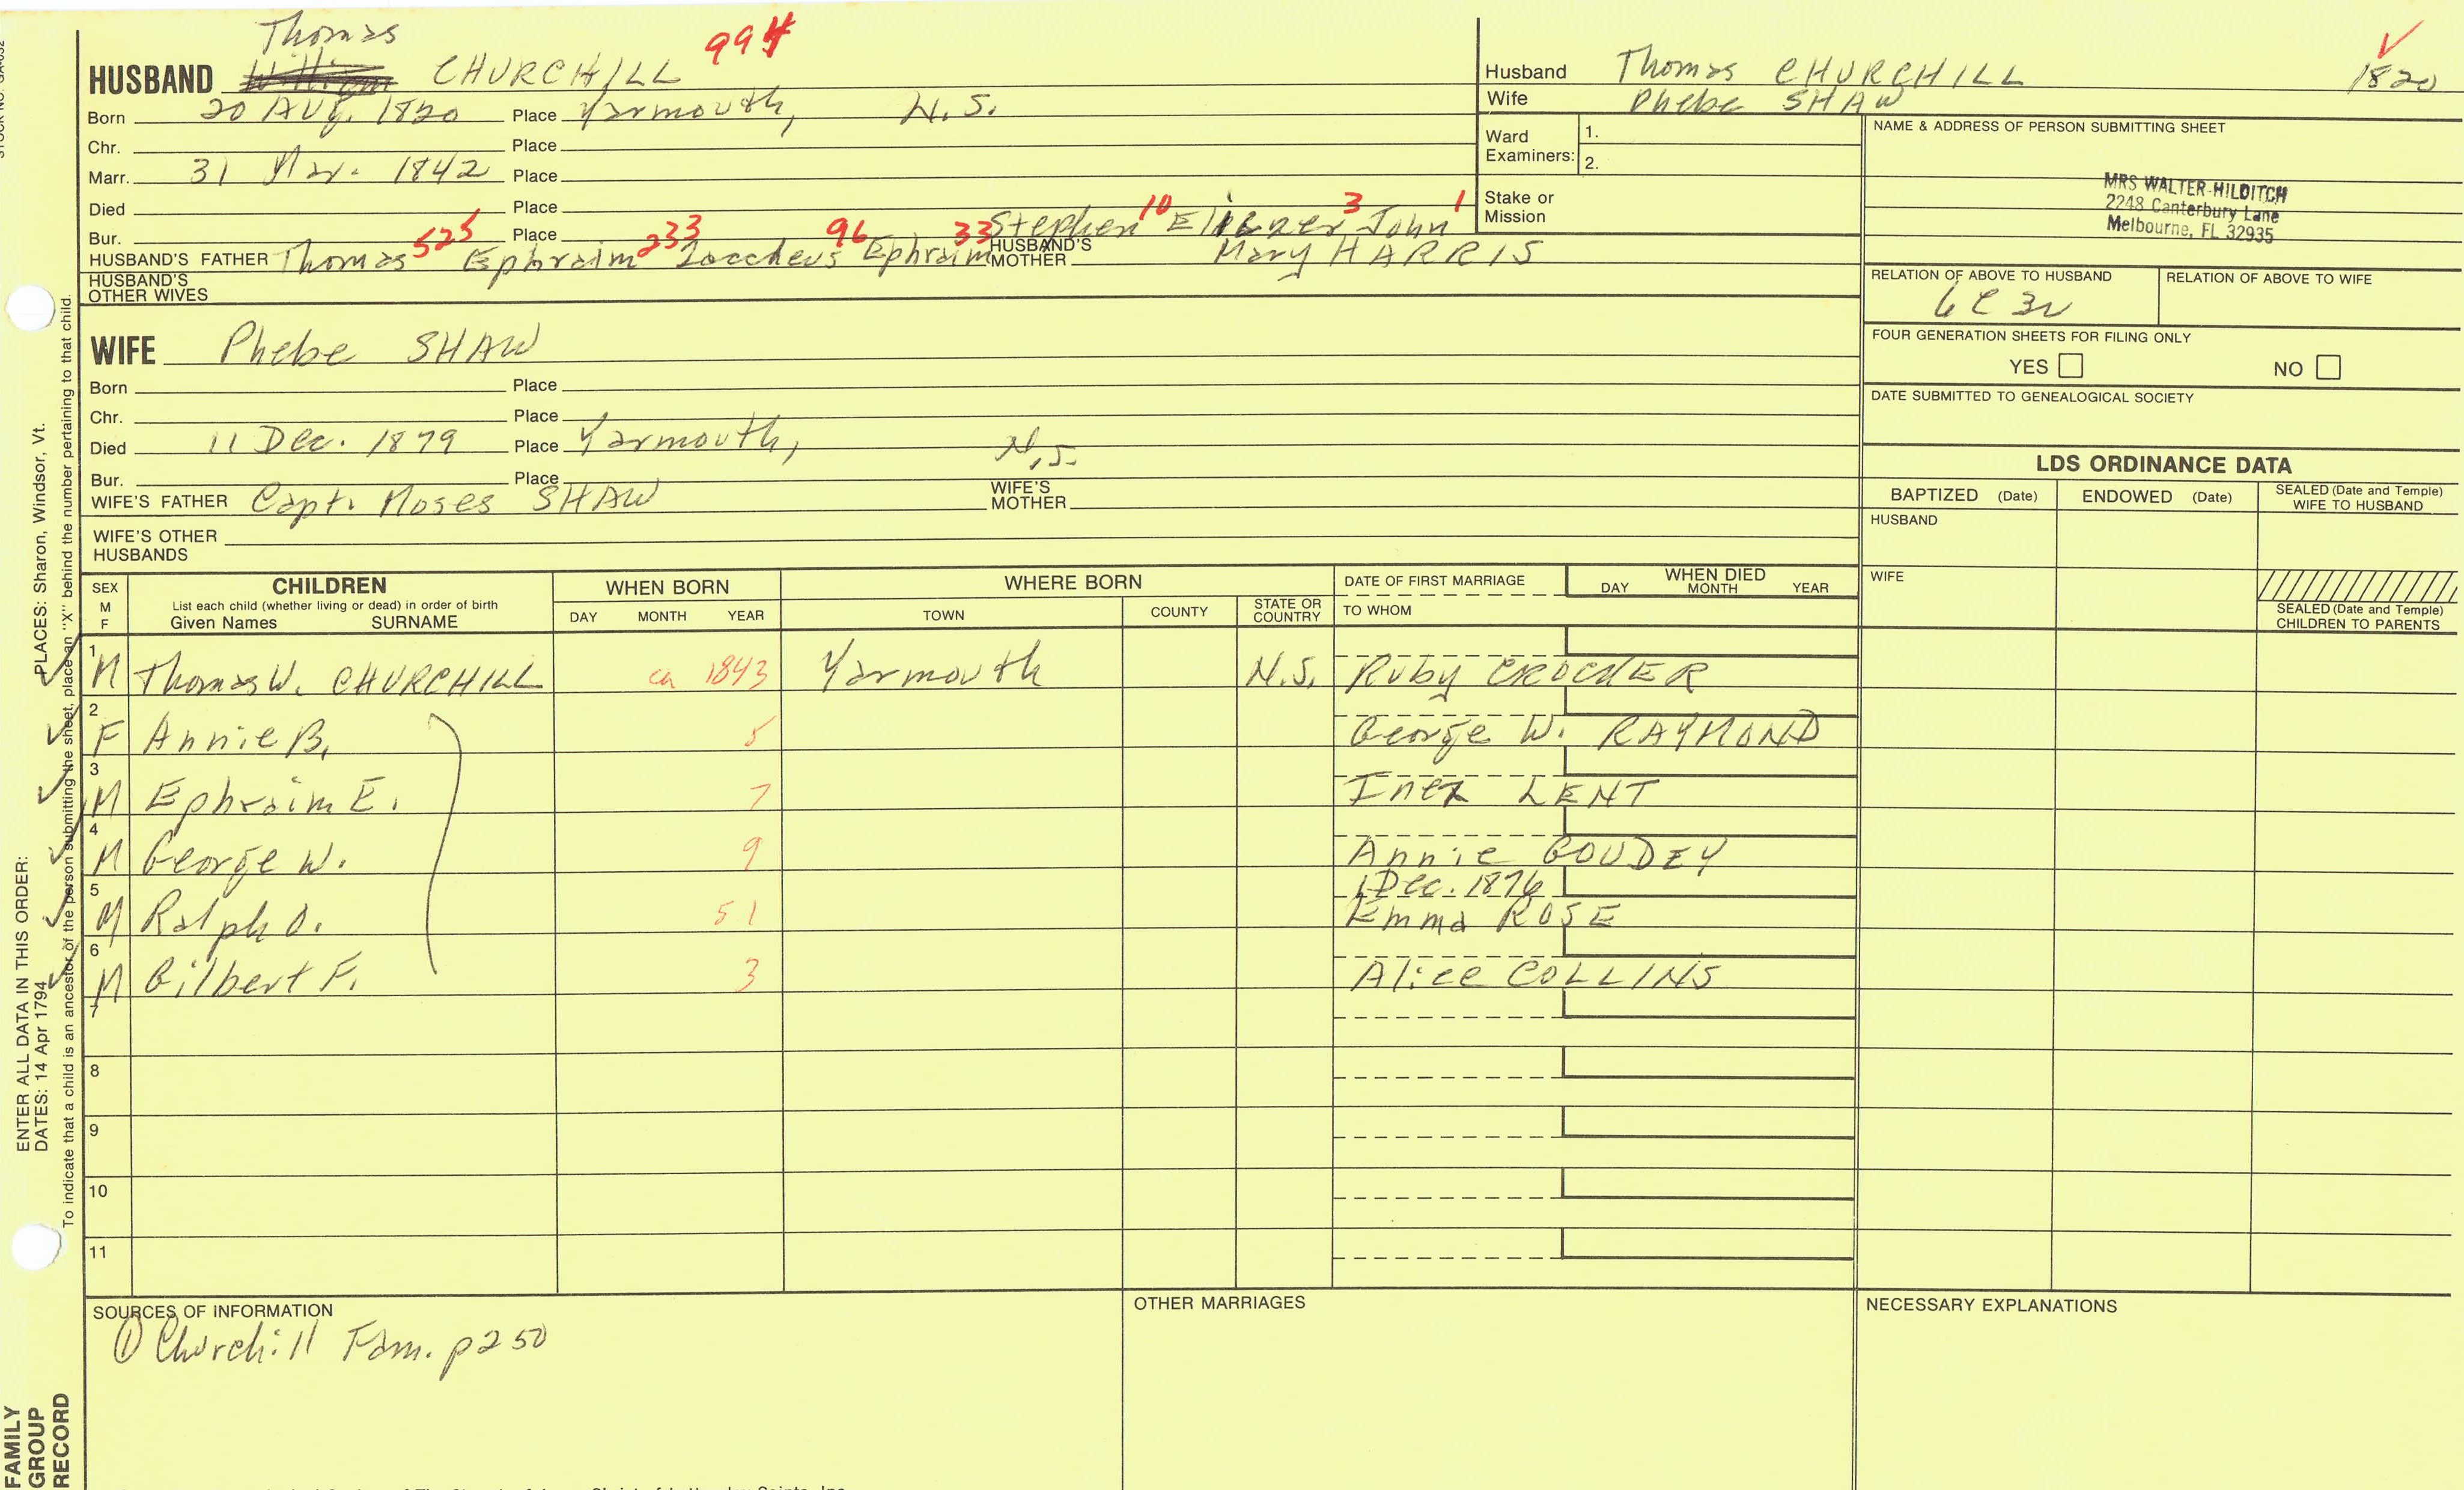 Thomas
HUSBAND William CHURCHILL 994
Born 20 Aug. 1820 Place Yarmouth, N.S.
Chr. Place
Marr. 31 Mar. 1842 Place
Died Place
Bur. Place Stephen 10 Eliezer 3 John 1
HUSBAND'S FATHER Thomas 525 Ephraim 233 Zaccheus 96 Ephraim 33 HUSBAND'S MOTHER Mary HARRIS
HUSBAND'S OTHER WIVES
Husband Thomas CHURCHILL 1820 ✓
Wife Phebe SHAW
Ward Examiners: 1.
2.
Stake or Mission
NAME & ADDRESS OF PERSON SUBMITTING SHEET
MRS WALTER HILDITCH
2248 Canterbury Lane
Melbourne, FL 32935
RELATION OF ABOVE TO HUSBAND RELATION OF ABOVE TO WIFE
6C3R
FOUR GENERATION SHEETS FOR FILING ONLY
YES NO
DATE SUBMITTED TO GENEALOGICAL SOCIETY
WIFE Phebe SHAW
Born Place
Chr. Place
Died 11 Dec. 1879 Place Yarmouth, N.S.
Bur. Place
WIFE'S FATHER Capt. Moses SHAW WIFE'S MOTHER
WIFE'S OTHER HUSBANDS
LDS ORDINANCE DATA
BAPTIZED (Date) ENDOWED (Date) SEALED (Date and Temple) WIFE TO HUSBAND
HUSBAND
WIFE
SEALED (Date and Temple) CHILDREN TO PARENTS
SEX M F CHILDREN WHEN BORN WHERE BORN DATE OF FIRST MARRIAGE WHEN DIED
List each child (whether living or dead) in order of birth
Given Names SURNAME DAY MONTH YEAR TOWN COUNTY STATE OR COUNTRY TO WHOM DAY MONTH YEAR
1 M Thomas W. CHURCHILL ca 1843 Yarmouth N.S. Ruby CROCKER
2 F Annie B. 5 George W. RAYMOND
3 M Ephraim E. 7 Inez LENT
4 M George W. 9 Annie GOUDEY
1 Dec. 1876
5 M Ralph O. 51 Emma ROSE
6 M Gilbert F. 3 Alice COLLINS
7
8
9
10
11
SOURCES OF INFORMATION
① Churchill Fam. p250
OTHER MARRIAGES
NECESSARY EXPLANATIONS
ENTER ALL DATA IN THIS ORDER:
DATES: 14 Apr 1794 PLACES: Sharon, Windsor, Vt.
To indicate that a child is an ancestor of the person submitting the sheet, place an "X" behind the number pertaining to that child.
FAMILY
GROUP
RECORD